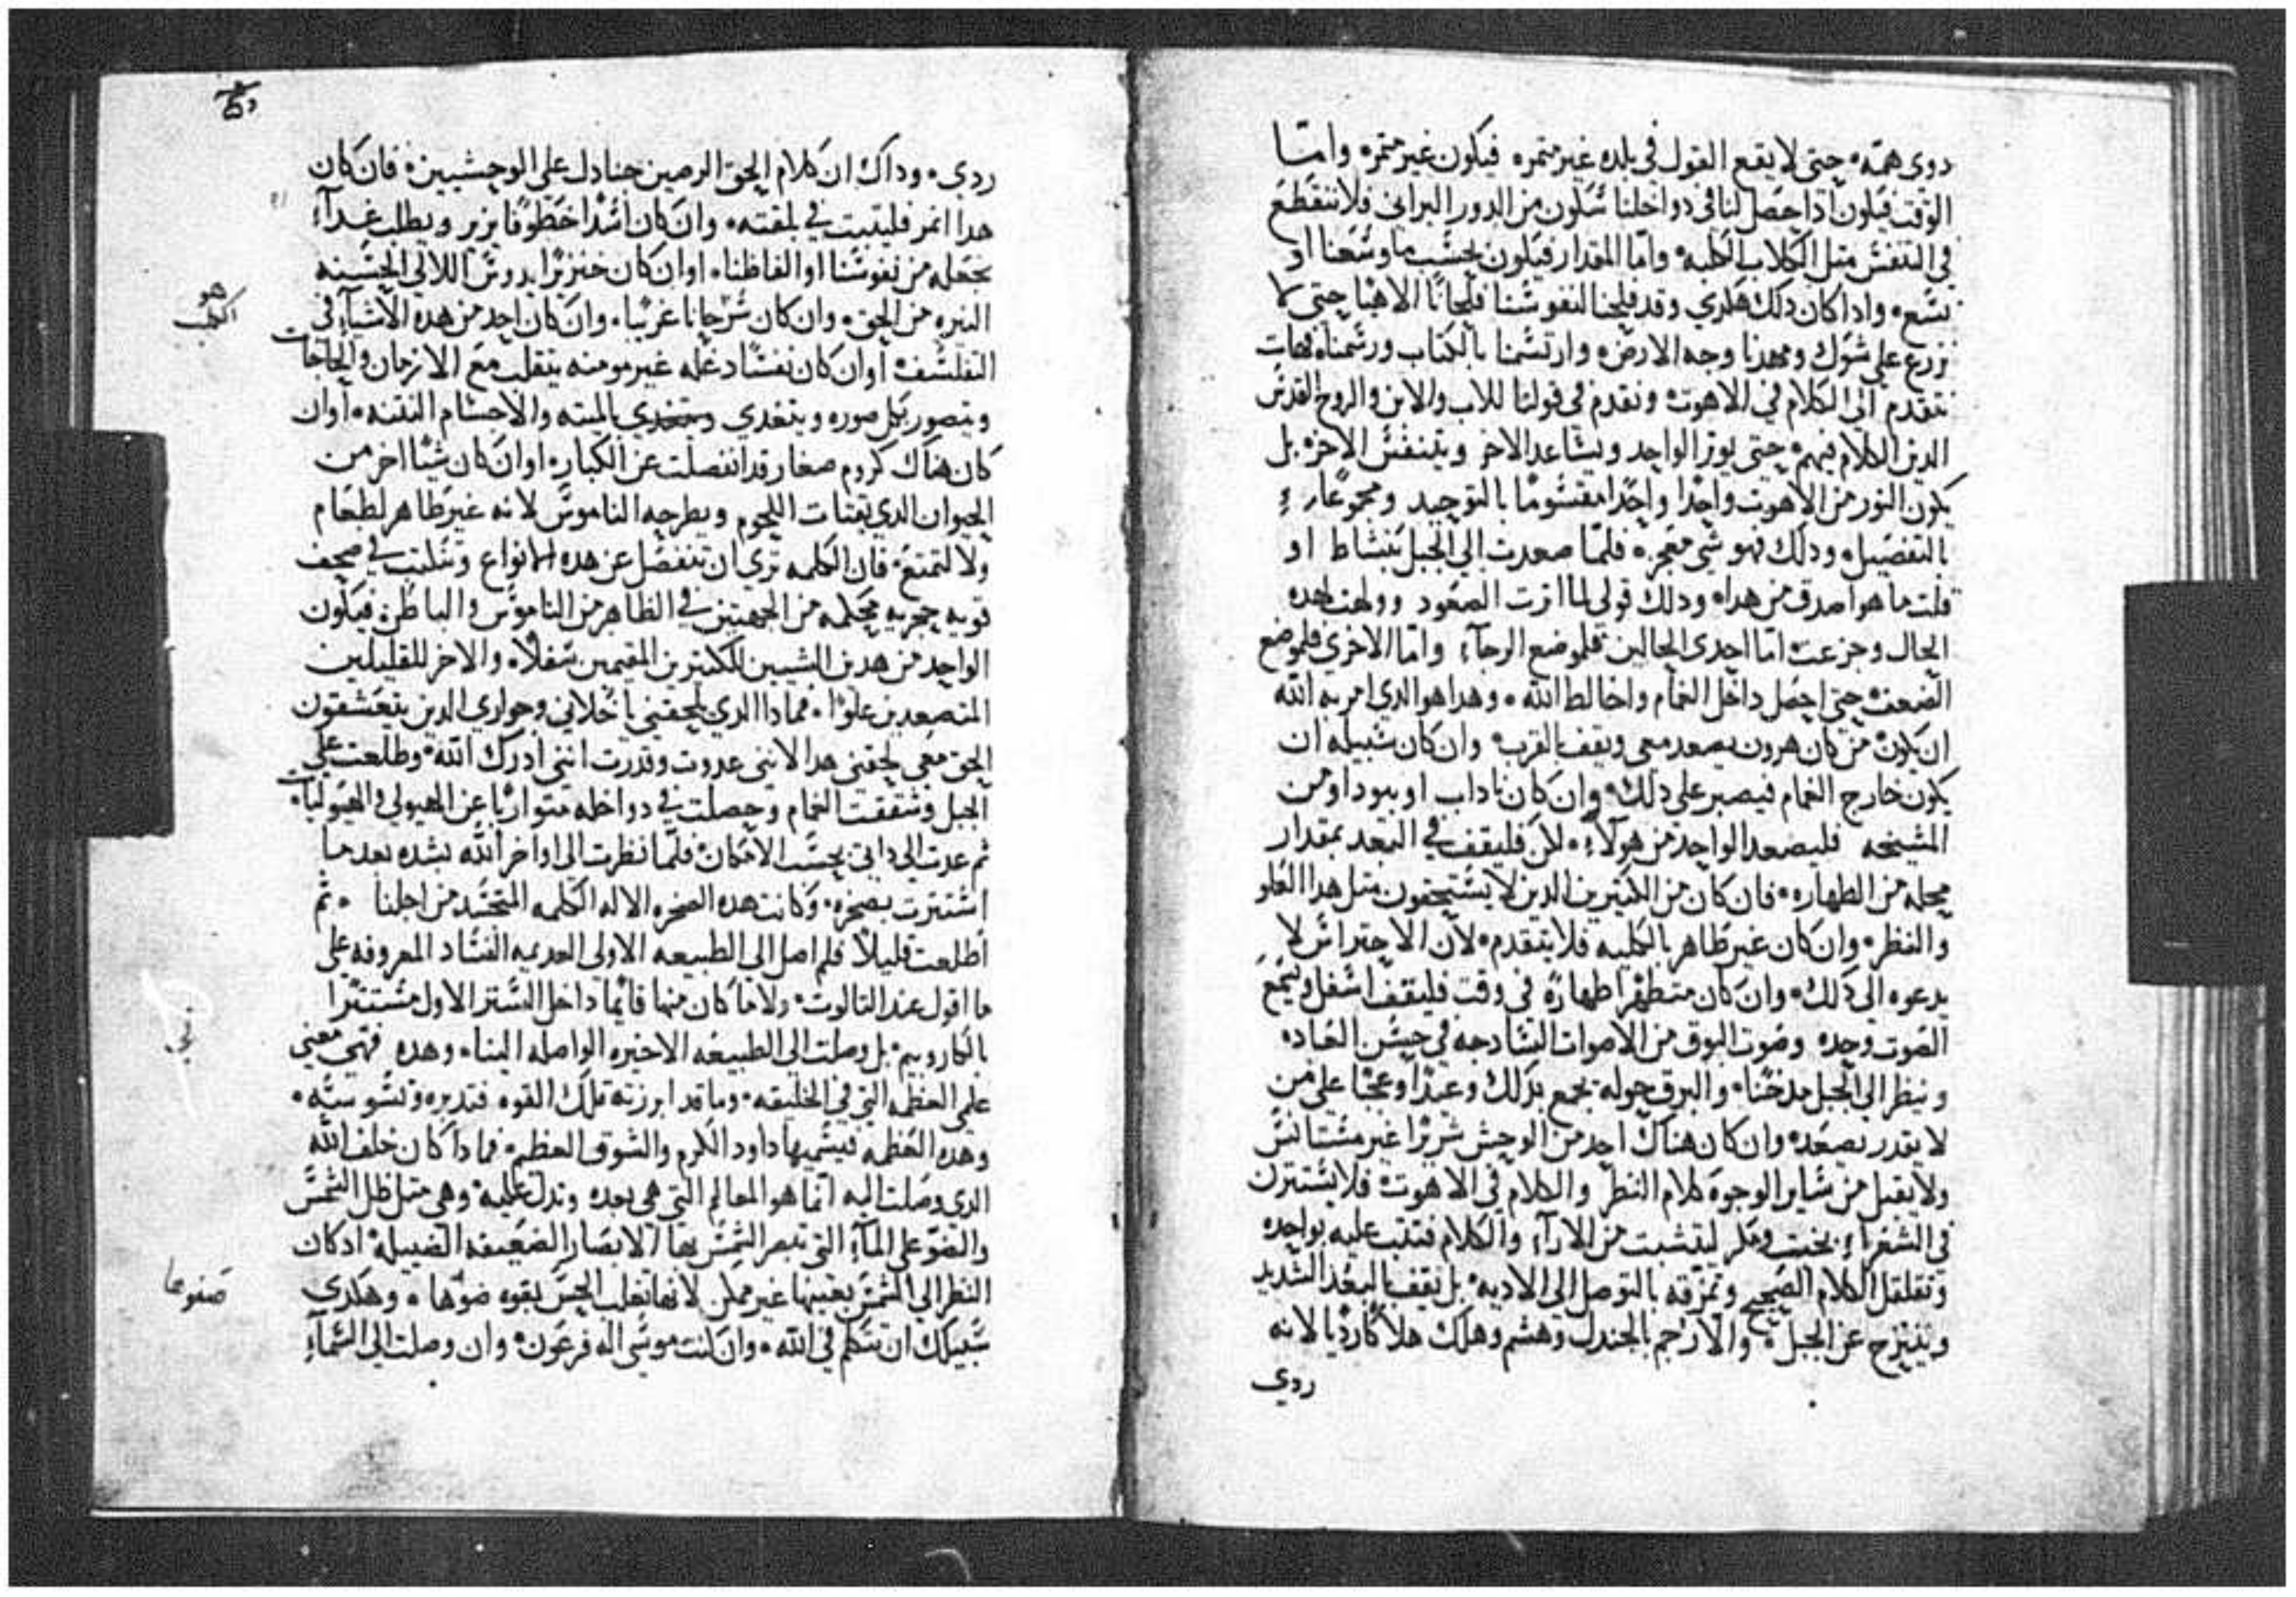 دوى همّه، حتى لا يقع القول فى بلده غير متمره فيكون غير متمره واما
الوقت فيكون ادا حصل لنا فى دواخلنا سكون من الدور البرانى فلا ننقطع
فى التنفس متل الكلاب الكلبه، واما المقدار فيكون بحسب ما وسعنا او
نسع، وادا كان دلك هكدى وقد فلحنا لنفوسنا فلحانا الاهيا حتى لا
نزرع على شوك ومهدنا وجه الارض، وارتسمنا بالكتاب ورسمناه فهات
نتقدم الى الكلام فى الاهوت، ونقدم فى قولنا للاب والابن والروح القدس
الدين الكلام فيهم، حتى يوتر الواحد ويساعد الاخر ويتنفس الاخر، بل
يكون النور من الاهوت واحدا واحدا مقسوما بالتوحيد ومجموعا
بالتفصيل، ودلك فهو شى معجزه فلما صعدت الى الجبل بنشاط او
قلت ما هو اصدق من هدا، ودلك قولى لما اثرت الصعود وولهت لهده
الحال وجزعت اما احدى الحالين فلموضع الرجآء واما الاخرى فلموضع
الضعف، حتى احصل داخل الغمام واخالط الله، وهدا هو الدى امر به الله
ان يكون من كان هرون يصعد معى ويقف بالقرب وان كان سبيله ان
يكون خارج الغمام فيصبر على دلك، وان كان ناداب او بيودا ومن
المشيخه فليصعد الواحد من هولآء، لكن فليقف فى البعد بمقدار
محله من الطهاره، فان كان من الكتيرين الدين لا يستحقون متل هدا العلو
والنظر، وان كان غير طاهر بالكليه فلا يتقدم، لان الاحتراس لا
يدعوه الى دلك، وان كان متطهرا طهارة فى وقت فليقف اسفل وليسمع
الصوت وحده وصوت البوق من الاصوات السادجه فى حسن العباده
وينظر الى الجبل مدخنا، والبرق حوله يجمع بدلك وعيدا وعجبا على من
لا يقدر يصعد، وان كان هناك احد من الوحش شريرا غير مستانس
ولا يقبل من ساير الوجوه كلام النظر والكلام فى الاهوت، فلا يستترن
فى الشعراء بخبت ومكر ليتشبت من الارآء والكلام فتتب عليه بواحده
وتقلقل الكلام الصحيح وتمزقه بالتوصل الى الاديه، بل نقف بالبعد الشديد
وينتزح عن الجبل، والا رجم بالجندل وهشم وهلك هلاكا رديا لانه
ردى
ردى، وداك ان كلام الحق الرصين جنادل على الوحشيين، فان كان
هدا انمر فليتبت فى بلقته، وان كان اسدا خطوفا يزير ويطلب غدآء
نجعله من نفوسنا او الفاظنا، او ان كان خنزيرا يدوس اللالى الحسنه
النيره من الحق، وان كان سرحانا غريبا، وان كان احد من هده الاشيآء فى
التفلسف، او ان كان نفسا دغله غير مومنه يتقلب مع الازمان والحاجات
ويتصور بكل صوره ويتغدى بالميته والاجسام النتنه، او ان
كان هناك كروم صغار قد انفصلت عن الكبار، او ان كان شيا اخر من
الحيوان الدى يقتات اللحوم ويطرحه الناموس لانه غير طاهر لطعام
ولا لتمتع، فان الكلمه ترى ان تنفصل عن هده الانواع وتتلبت فى صحف
قويه حجريه محكمه من الجهتين فى الظاهر من الناموس والباطن، فيكون
الواحد من هدين الشيين للكتيرين المقيمين سفلا، والاخر للقليلين
المتصعدين علوا، فمادا الدى لحقنى يا خلانى وحوارى الدين يتعشقون
الحق معى لحقنى هدا لاننى عدوت وقدرت اننى ادرك الله، وطلعت على
الجبل وشققت الغمام وحصلت فى دواخله متواريا عن الهيولى والهيوليات،
ثم عدت الى داتى بحسب الامكان، فلما نظرت الى اواخر الله بشده بعد ما
استترت بصخره، وكانت هده الصخره الاله الكلمه المتجسد من اجلنا، ثم
اطلعت قليلا فلم اصل الى الطبيعه الاولى العديمه الفساد المعروفه على
ما اقول عند التالوت، ولا ما كان منها قايما داخل الستر الاول مستترا
بالكاروبيم، بل وصلت الى الطبيعه الاخيره الواصله الينا، وهده فهى معنى
على العظمه التى فى الخليقه، وما قد ابرزته تلك القوه فتدبره وتسوسه،
وهده العظمه فيسميها داود الكرم والشوق العظم، فما داك كان خلف الله
الدى وصلت اليه انما هو المعالم التى هى بعده وتدل عليه، وهى متل ظل الشمس
والضو على المآء التى تبصر الشمس بها الابصار الضعيفه الضييله، ادكان
النظر الى الشمس بعينها غير ممكن لانها تغلب الحس بقوه ضوها، وهكدى
سبيلك ان تتكلم فى الله، وان كنت موسى اله فرعون، وان وصلت الى السمآء
هو
الكلب
صفوها